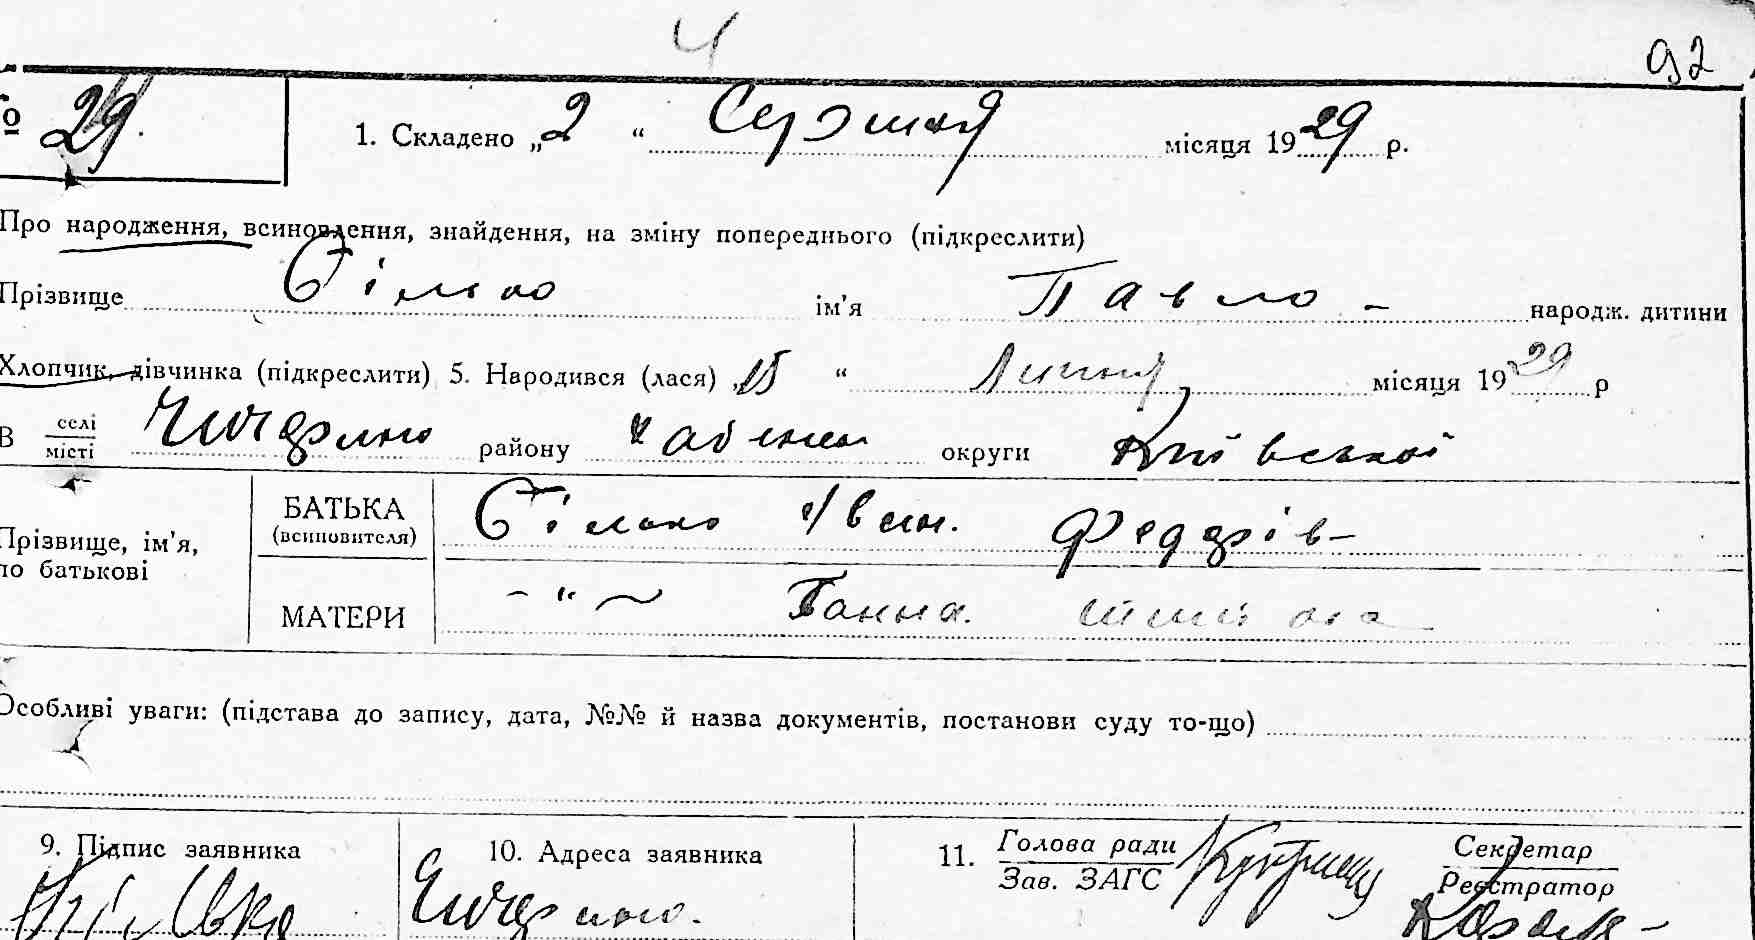 4
92
№ 29.
1. Складено „2“ Серпня місяця 1929 р.
Про народження, всиновлення, знайдення, на зміну попереднього (підкреслити)
Прізвище ім'я Павло - народж. дитини
Хлопчик, дівчинка (підкреслити) 5. Народився (лася) „15“ Липня місяця 1929 р
В селі
місті району округи Київської
Прізвище, ім'я,
по батькові
БАТЬКА
(всиновителя)
Іван. Федорів-
МАТЕРИ
- " ~ Ганна.
Особливі уваги: (підстава до запису, дата, №№ й назва документів, постанови суду то-що)
9. Підпис заявника
10. Адреса заявника
11. Голова ради
Зав. ЗАГС
Секретар
Реєстратор